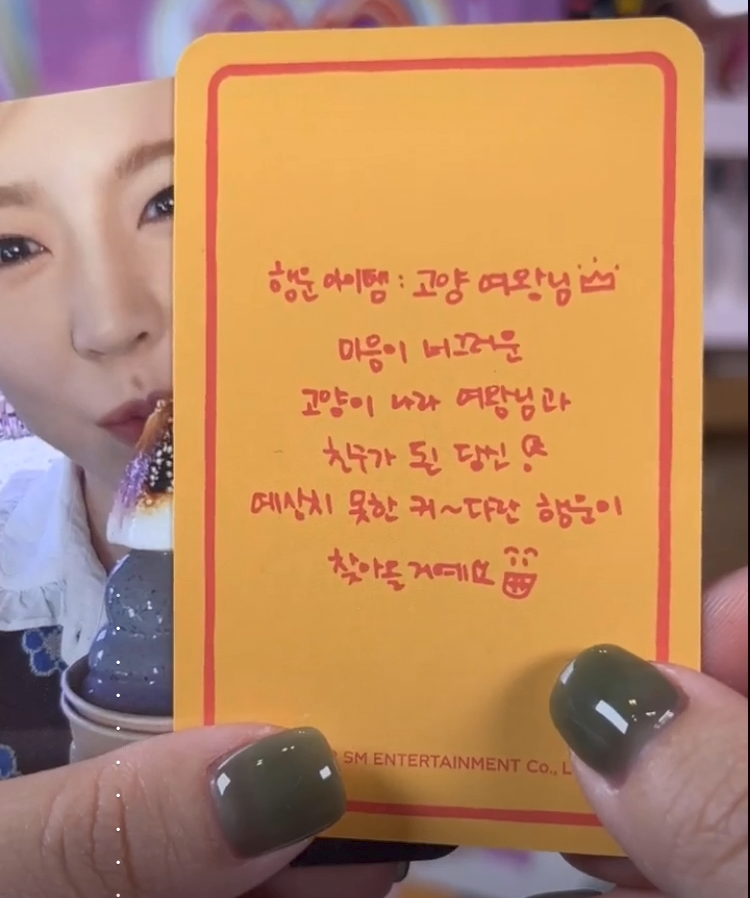 행운 아이템 : 고양 여왕님
마음이 너그러운
고양이 나라 여왕님과
친구가 된 당신!
예상치 못한 커~다란 행운이
찾아올 거예요
SM ENTERTAINMENT Co., L